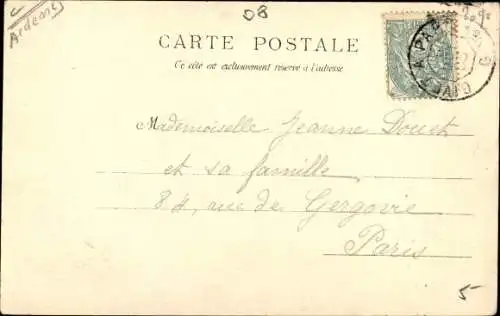 Ardennes
08
CARTE POSTALE
Ce côté est exclusivement réservé à l'adresse
Mademoiselle Jeanne Douet
et sa famille
87, rue de Gergovie
Paris
5